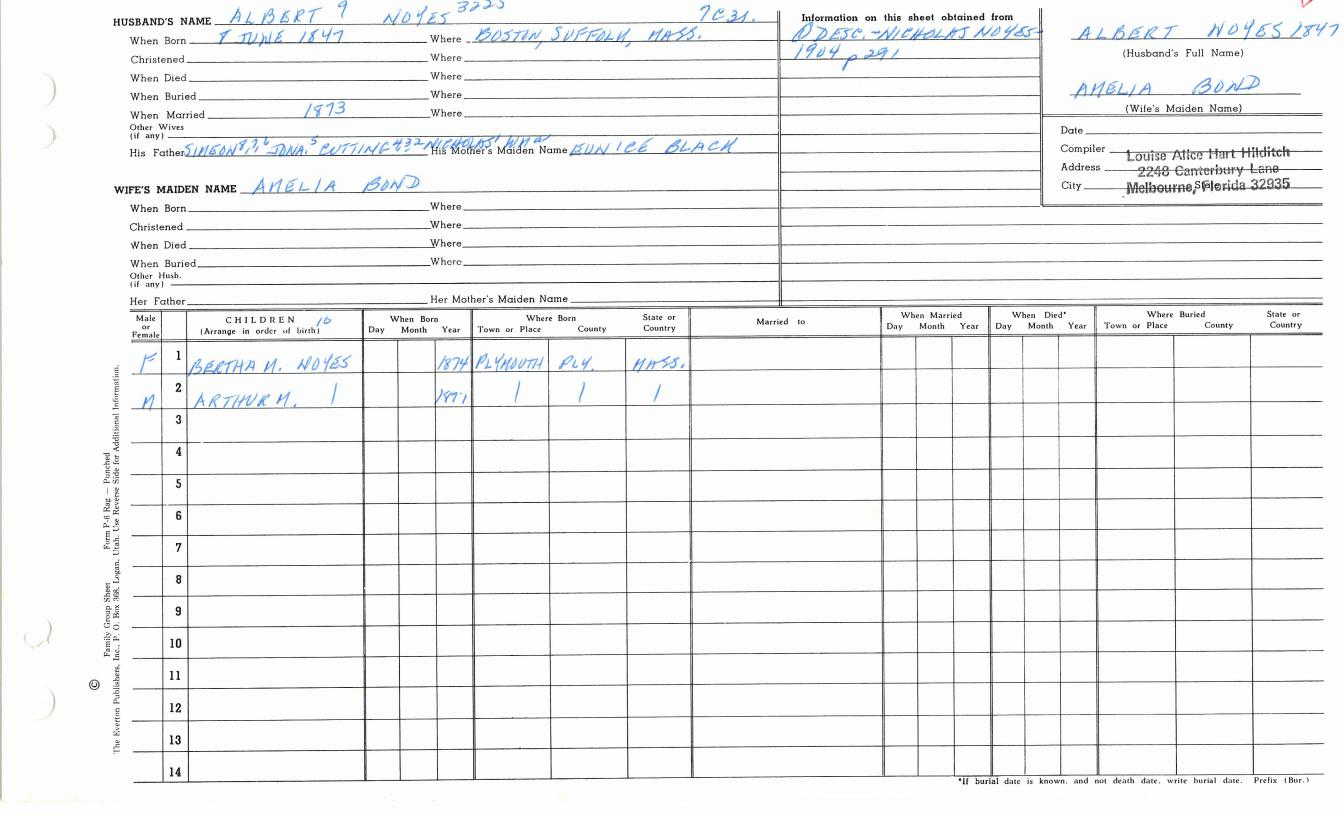 HUSBAND'S NAME ALBERT 9 NOYES 3223
When Born 7 JUNE 1847 Where BOSTON, SUFFOLK, MASS.
Christened Where
When Died Where
When Buried Where
When Married 1873 Where
Other Wives
(if any)
His Father SIMEON 8,7,6 JONA. 5 CUTTING 4 NICHOLAS His Mother's Maiden Name EUNICE BLACK
WIFE'S MAIDEN NAME AMELIA BOND
When Born Where
Christened Where
When Died Where
When Buried Where
Other Husb.
(if any)
Her Father Her Mother's Maiden Name
Information on this sheet obtained from
DESC.-NICHOLAS NOYES-
1904 p 291
ALBERT NOYES 1847
(Husband's Full Name)
AMELIA BOND
(Wife's Maiden Name)
Date
Compiler Louise Alice Hart Hilditch
Address 2248 Canterbury Lane
City Melbourne, Florida 32935
Male or Female CHILDREN 10 (Arrange in order of birth) When Born Day Month Year Where Born Town or Place County State or Country Married to When Married Day Month Year When Died* Day Month Year Where Buried Town or Place County State or Country
F 1 BERTHA M. NOYES 1874 PLYMOUTH PLY. MASS.
M 2 ARTHUR M. | 1877 | | |
3
4
5
6
7
8
9
10
11
12
13
14
*If burial date is known, and not death date, write burial date. Prefix (Bur.)
Family Group Sheet Form P-6 Rag — Punched
© The Everton Publishers, Inc., P. O. Box 368, Logan, Utah. Use Reverse Side for Additional Information.